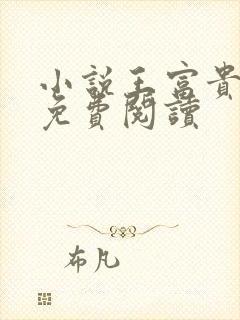 小說王富貴
免費閱讀
布凡